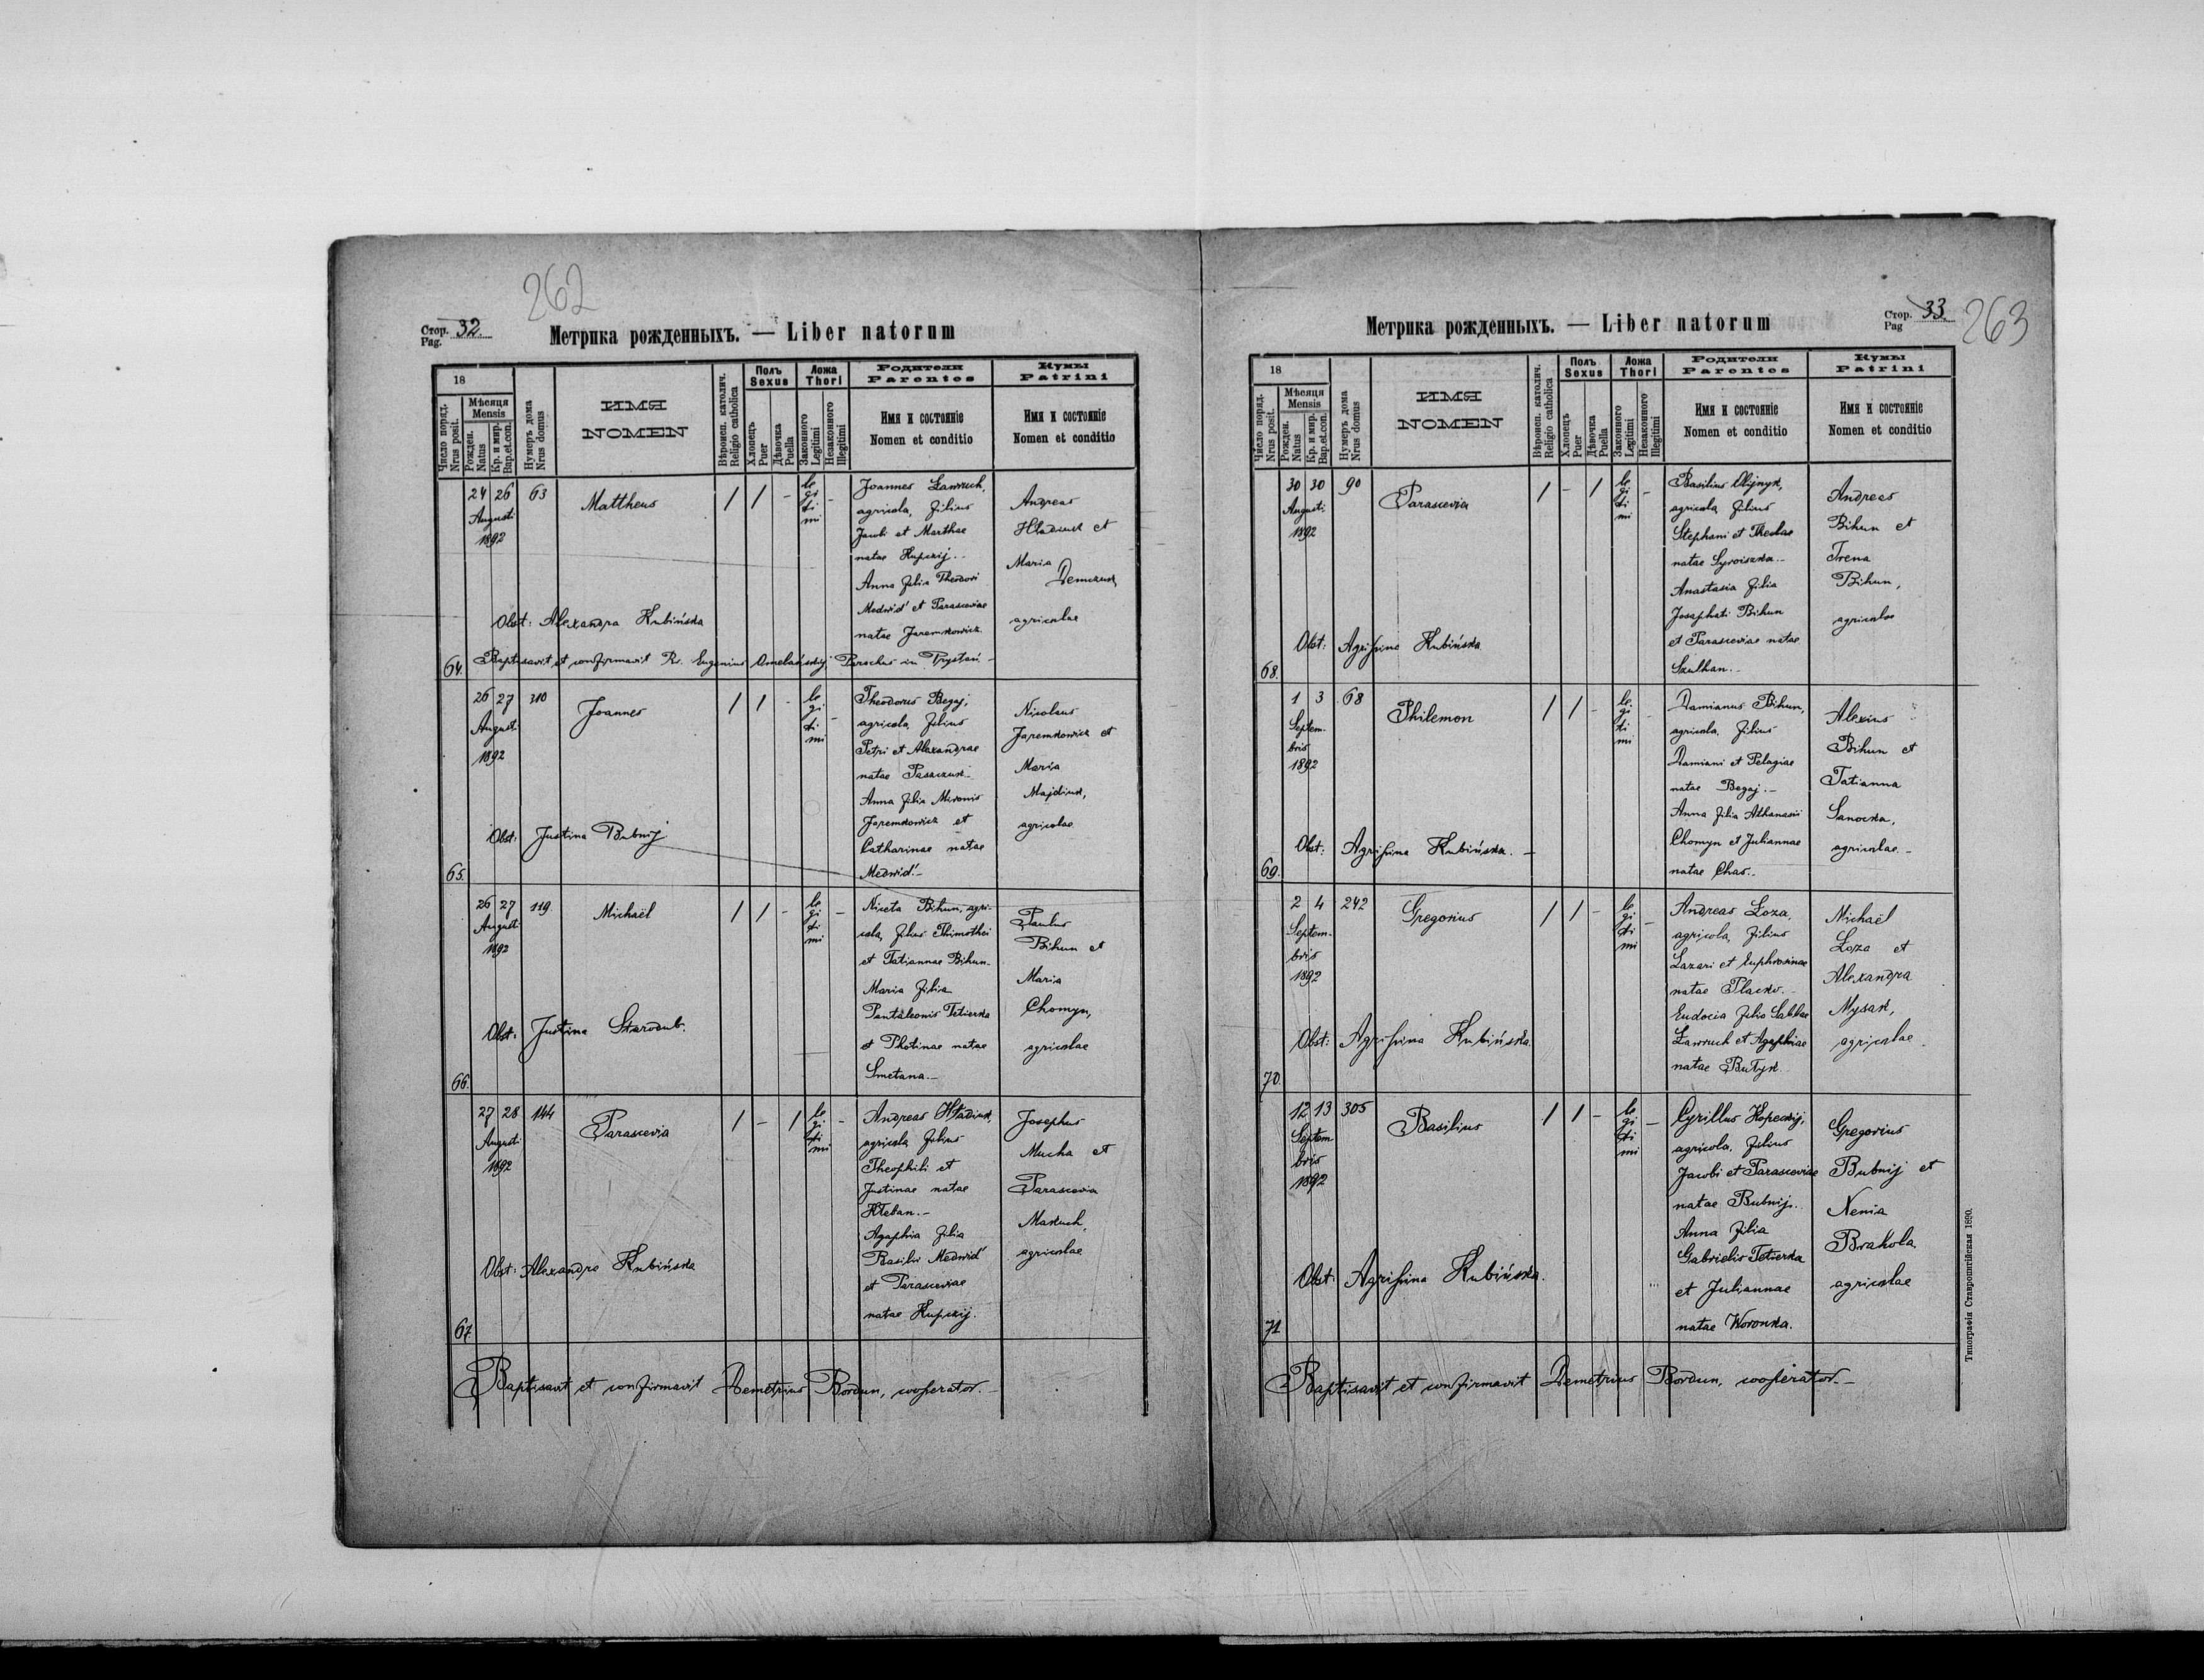 262
Стор. 32.
Pag.
Метрика рожденныхъ. — Liber natorum
18
Число поряд.
Nrus posit.
Мѣсяця
Mensis
Рожден.
Natus
Кр. и мир.
Bap. et con.
Нумеръ дома
Nrus domus
ИМЯ
NOMEN
Вѣроисп. католич.
Religio catholica
Полъ
Sexus
Хлопецъ
Puer
Дѣвочка
Puella
Ложа
Thori
Законного
Legitimi
Незаконного
Illegitimi
Родители
Parentes
Имя и состоянiе
Nomen et conditio
Кумы
Patrini
Имя и состоянiе
Nomen et conditio
64.
24 26
Augusti
1892
63
Mattheus
/ / -
le
gi
ti
mi
-
Joannes Ławruch,
agricola, filius
Jacobi et Marthae
natae Kupczij.-
Anna filia Theodori
Medwid' et Parasceviae
natae Jaremkowicz.
Andreas
Hładiuk et
Maria
Demczuk,
agricolae
Obst: Alexandra Kubińska
Baptisavit et confirmavit Rs. Eugenius Parochus in
65.
26 27
Augusti
1892
310
Joannes
/ / -
le
gi
ti
mi
-
Theodorus Begaj,
agricola, filius
Petri et Alexandrae
natae Pasaczuk.-
Anna filia Mironis
Jaremkowicz et
Catharinae natae
Medwid'.-
Nicolaus
Jaremkowicz et
Maria
Majdiuk,
agricolae
Obst: Justina Bubnij
66.
26 27
Augusti
1892
119.
Michaël
/ / -
le
gi
ti
mi
-
Niceta Bihun, agri-
cola, filius Thimothei
et Tatiannae Bihun.
Maria filia
Pantaleonis Tetierka
et Photinae natae
Smetana.-
Paulus
Bihun et
Maria
Chomyn,
agricolae
Obst: Justina Starodub.
67.
27 28
Augusti
1892
144
Parascevia
/ - /
le
gi
ti
mi
-
Andreas Hładiuk,
agricola, filius
Theophili et
Justinae natae
Hłeban.-
Agaphia filia
Basilii Medwid'
et Parasceviae
natae Kupczij.
Josephus
Mucha et
Parascevia
Makuch,
agricolae
Obst: Alexandra Kubińska
Baptisavit et confirmavit Demetrius Bordun, cooperator.-
Стор. 33.
Pag
263
Метрика рожденныхъ. — Liber natorum
18
Число поряд.
Nrus posit.
Мѣсяця
Mensis
Рожден.
Natus
Кр. и мир.
Bap. et con.
Нумеръ дома
Nrus domus
ИМЯ
NOMEN
Вѣроисп. католич.
Religio catholica
Полъ
Sexus
Хлопецъ
Puer
Дѣвочка
Puella
Ложа
Thori
Законного
Legitimi
Незаконного
Illegitimi
Родители
Parentes
Имя и состоянiе
Nomen et conditio
Кумы
Patrini
Имя и состоянiе
Nomen et conditio
68.
30 30
Augusti
1892
90
Parascevia
/ - /
le
gi
ti
mi
-
Basilius Olijnyk,
agricola, filius
Stephani et Theclae
natae Syroiszka.-
Anastasia filia
Josaphati Bihun
et Parasceviae natae
Szulhan.-
Andreas
Bihun et
Irena
Bihun,
agricolae
Obst: Agripina Kubińska
69.
1 3
Septem-
bris
1892
68
Philemon
/ / -
le
gi
ti
mi
-
Damianus Bihun,
agricola, filius
Damiani et Pelagiae
natae Begaj.-
Anna filia Athanasii
Chomyn et Juliannae
natae Chas.-
Alexius
Bihun et
Tatianna
Sanocka,
agricolae.-
Obst: Agripina Kubińska.-
70.
2 4
Septem-
bris
1892
242
Gregorius
/ / -
le
gi
ti
mi
-
Andreas Łoza,
agricola, filius
Lazari et Euphrosinae
natae Placko.-
Eudocia filia Sabbae
Ławruch et Agaphiae
natae Butyk.
Michaël
Łoza et
Alexandra
Mysak,
agricolae
Obst: Agripina Kubińska.
71
12 13
Septem
bris
1892
305
Basilius
/ / -
le
gi
ti
mi
-
Cyrillus Kopeckij,
agricola, filius
Jacobi et Parasceviae
natae Bubnij.
Anna filia
Gabrielis Tetierka
et Juliannae
natae Woronka.
Gregorius
Bubnij et
Xenia
Brakola
agricolae
Obst: Agripina Kubińska.
Baptisavit et confirmavit Demetrius Bordun, cooperator.-
Типографія Ставропигійская 1890.